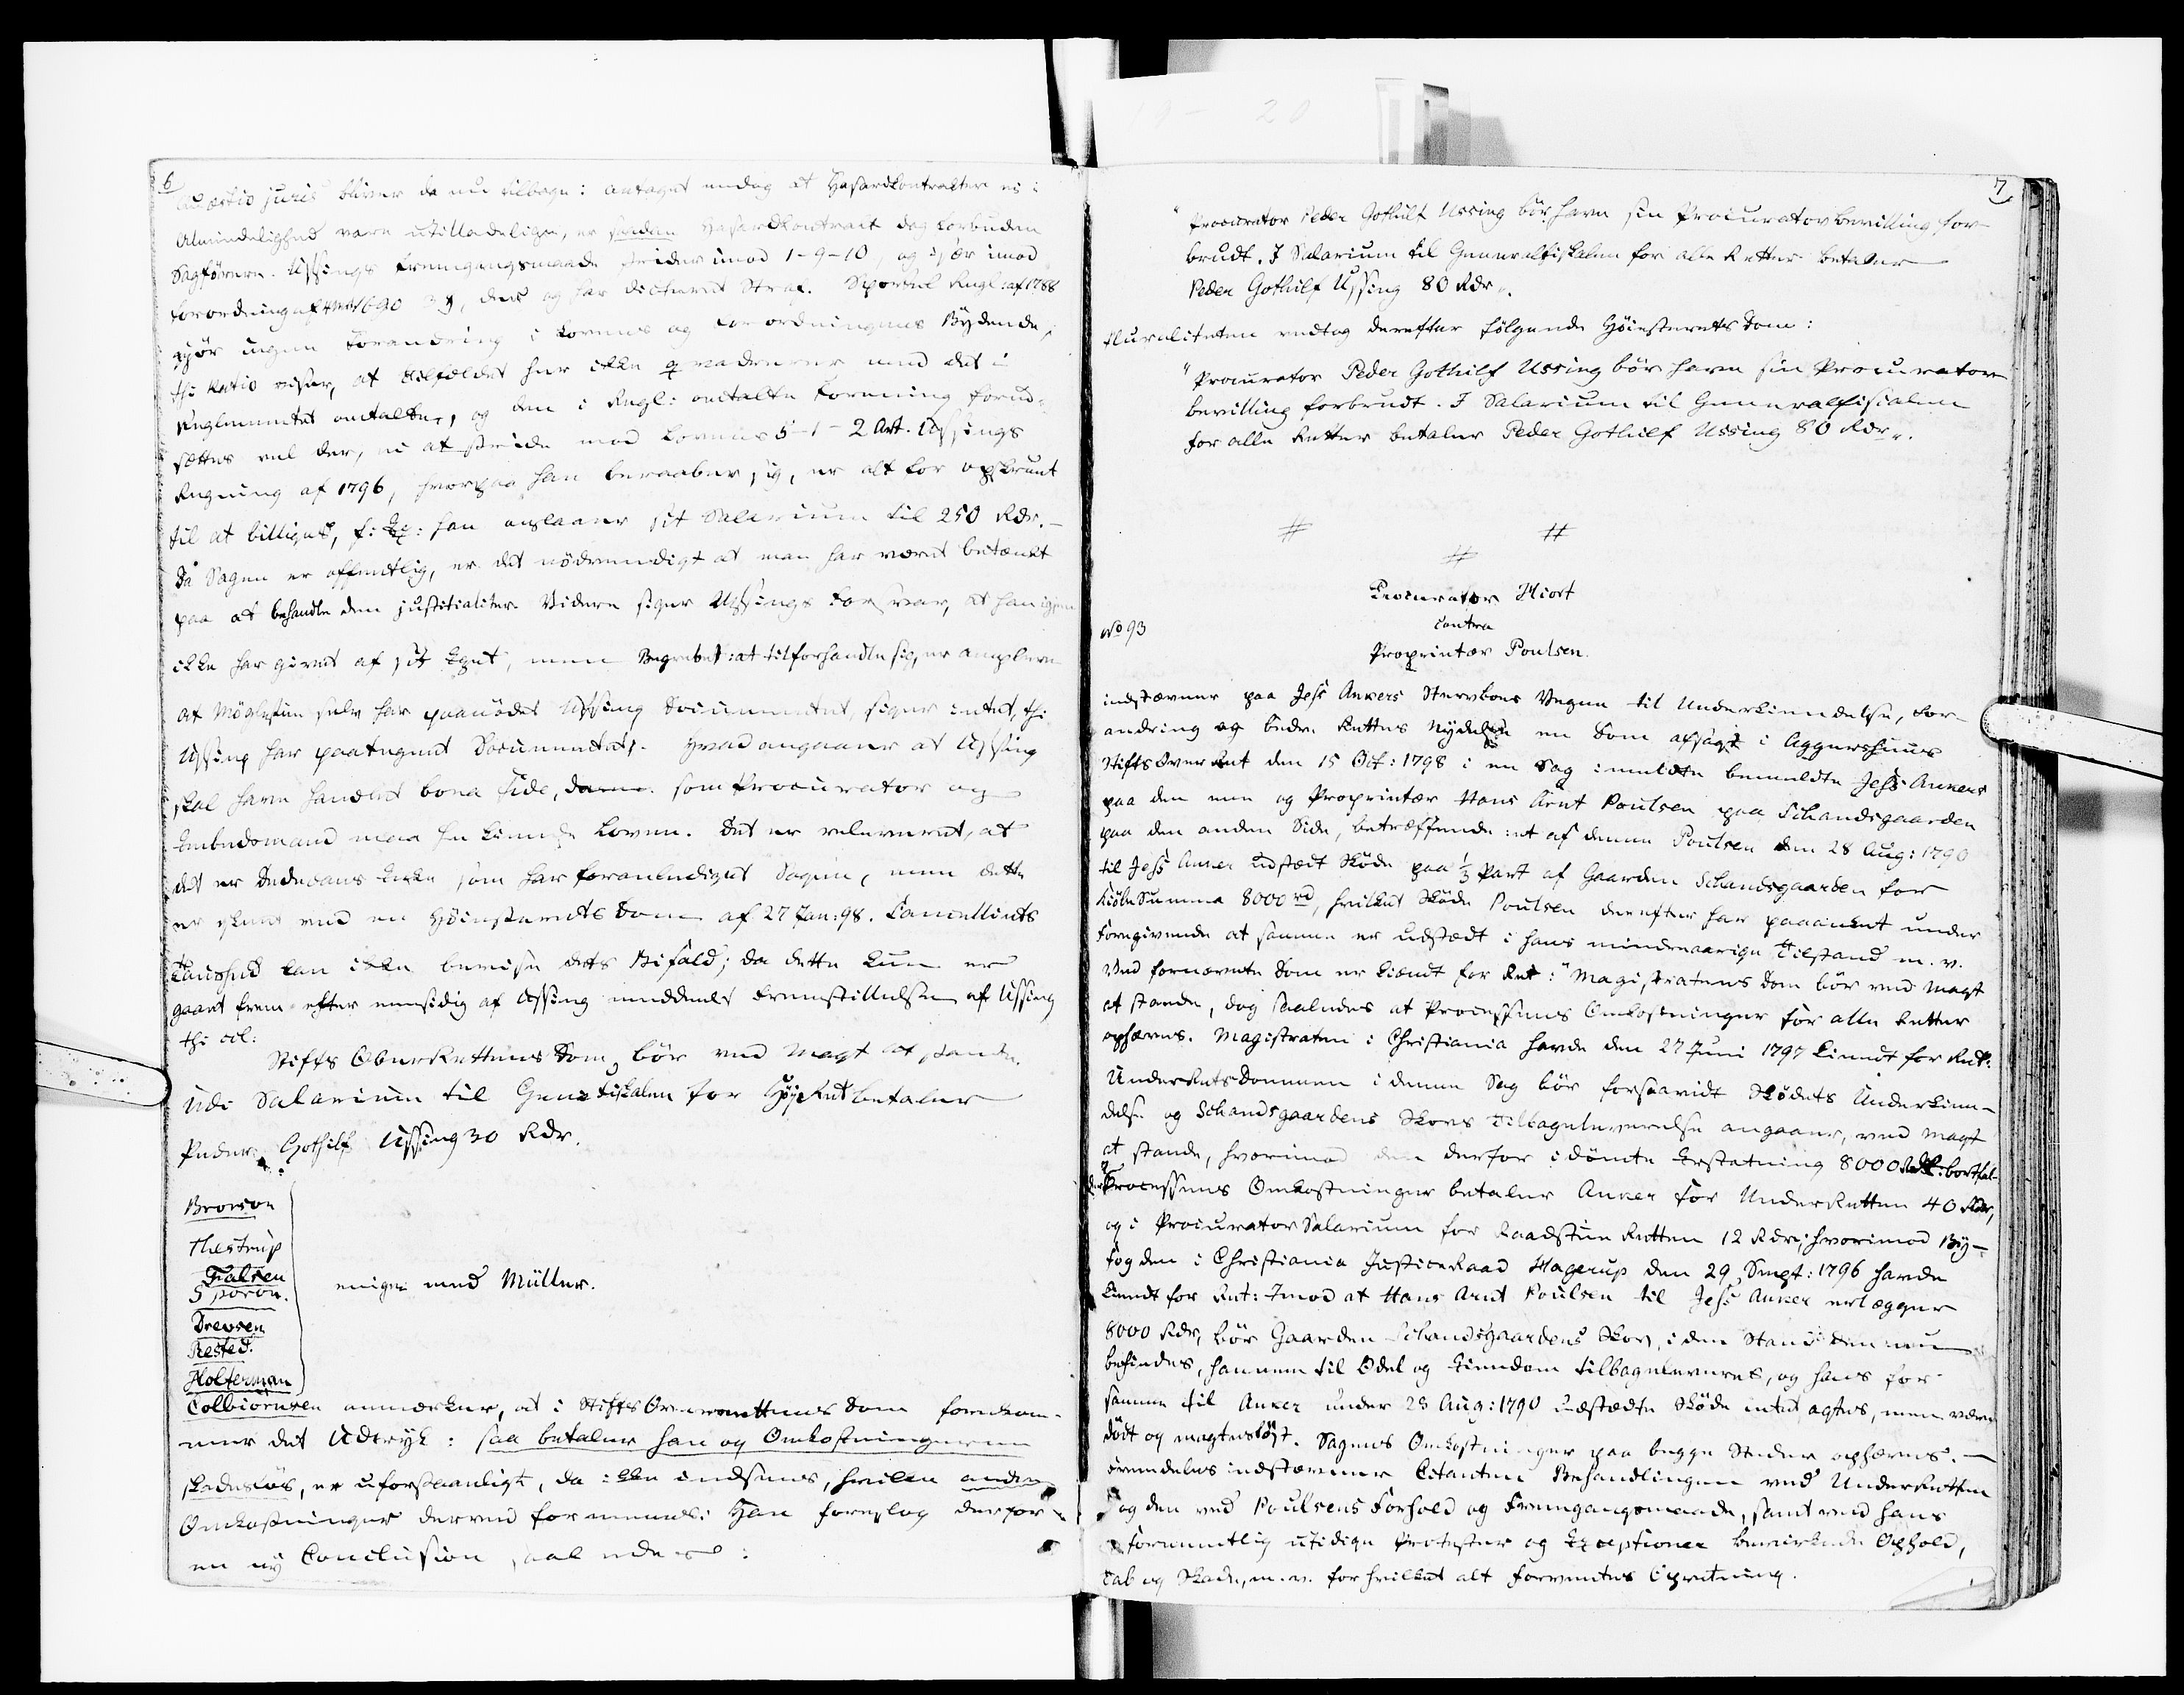 6
Qvæstio juris bliver da nu tilbage: antaget endog at Hasardkontrakter ei i
Almindelighed vare utilladelige, er saadan Hasardkontract dog forbuden
Sagförere. Ussings fremgangsmaade strider imod 1-9-10, og især imod
forordning af 1690 3 §, der og har dicteret Straf. Sportel Regl. af 1788
gjör ingen Forandring i Lovens og Forordningens Bydende,
thi Ratio viser, at tilfældet her ikke qvadrerer med det i
Reglementet omtalte, og den i Regl: omtalte Forening forud-
sættes vel der, ei at stride mod Lovens 5-1-2 Art. Ussings
Regning af 1796, hvorpaa han beraaber sig, er alt for opskruet
til at billiges, f: Ex: han anslaaer sit Salarium til 250 Rdr. -
Da Sagen er offentlig, er det nödvendigt at man har været betænkt
paa at behandle den justitialiter. Videre siger Ussings Forsvar, at han igjen
ikke har givet af sit Eget, men Begrebet: at tilforhandle sig, er amplere
At selv har paanödet Ussing Documentet, siger intet, thi
Ussing har paategnet Documentet. Hvad angaaer at Ussing
skal have handlet bona fide, da som Procurator og
Embedsmand maa he kiende Loven. Det er releveret, at
det er Dedecans Enke som har foranlediget Sagen, men dette
er skeet ved en Höiesterets Dom af 27 Jan: 98. Cancelliets
Taushed kan ikke bevise dets Bifald; da dette kun er
gaaet frem efter eensidig af Ussing meddeelt Fremstillelse af Ussing
thi vil:
Stifts OberRettens Dom bör ved Magt at stande.
Udi Salarium til Genefiskalen for HöyesteRet betaler
Peder Gothilf Ussing 30 Rdr.
Brorson
Thestrup
Falsen
Sporon.
Drevsen
Rested.
Holterman
enige med Müller.
Colbiörnsen anmærker, at i Stifts Overrettens Dom forekom-
mer det Udtryk: saa betaler han og Omkostningerne
skadeslös, er uforstaaeligt, da ikke indsees, hvilke andre
Omkostninger derved formenes. Han foreslog derfor
en ny Conclusion saaledes:
7
"Procurator Peder Gothilf Ussing bör have sin Procuratorbevilling for-
brudt. I Salarium til Generalfiskalen for alle Retter betaler
Peder Gothilf Ussing 80 Rdr.
Pluraliteten vedtog derefter fölgende Höiesterets Dom:
"Procurator Peder Gothilf Ussing bör have sin Procurator
bevilling forbrudt. I Salarium til Generalfiscalen
for alle Retter betaler Peder Gothilf Ussing 80 Rdr.
Procurator Hiort
No 93
contra
Proprietær Poulsen.
indstævner paa Jess Ankers Stervboes Vegne til Underkiendelse, For-
andring og bedre Rettes Nydelse en Dom afsagt i Aggershuus
Stifts OverRet den 15 Oct: 1798 i en Sag imellem bemeldte Jess Ankers
paa den ene og Proprietær Hans Arnt Poulsen paa Schandsgaarden
paa den anden Side, betræffende: et af denne Poulsen den 28 Aug: 1790
til Jess Anker udstædt Sköde paa 1/3 Part af Gaarden Schandsgaarden for
KiöbeSumma 8000 rd, hvilket Sköde Poulsen derefter har paaanket under
Foregivende at samme er udstædt i hans mindreaarige Tilstand m. v.
Ved fornævnte Dom er kiendt for Ret: "Magistratens Dom bör ved Magt
at stande, dog saaledes at Processens Omkostninger for alle Retter
ophæves. Magistraten i Christiania havde den 27 Juni 1797 kiendt for Ret:
UnderRetsDommen i denne Sag bör forsaavidt Sködets Underkien-
delse og Schandsgaardens Skovs Tilbageleverelse angaaer, ved Magt
at stande, hvorimod den derfor idömte Erstatning 8000 Rdr: bortfal-
der Processens Omkostninger betaler Anker for UnderRetten 40 Rdr,
og i Procurator Salarium for Raadstue Retten 12 Rdr; hvorimod By-
fogden i Christiania JusticeRaad Hagerup den 29 Sept: 1796 havde
kiendt for Ret: Imod at Hans Arnt Poulsen til Jess Anker erlægger
8000 Rdr, bör Gaarden Schandsgaardens Skov, i den Stand den nu
befindes, hannem til Odel og Eiendom tilbageleveres, og hans for
samme til Anker under 28 Aug: 1790 udstædte Sköde intet agtes, men være
dödt og magteslöst. Sagens Omkostninger paa begge Steder ophæves. -
Fremdeles indstævner Citanten Behandlingen ved UnderRetten
og den ved Poulsens Forhold og Fremgangsmaade, samt ved hans
formeentlig utidige Protester og Exceptioner bevirkede Ophold,
Tab og Skade, m. v. for hvilket alt forventes Opretning.